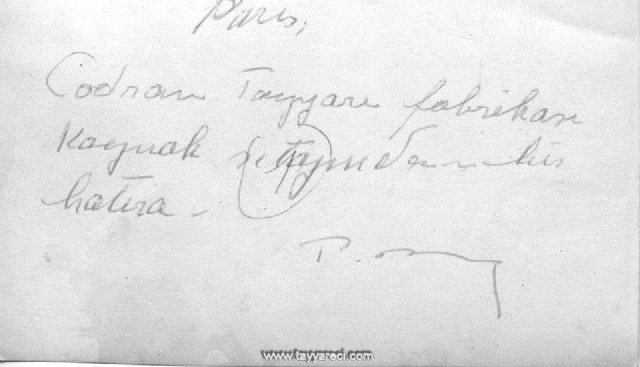 Paris,
Codran Tayyare fabrikası
Kaynak bir
hatıra -
www.tayyareci.com